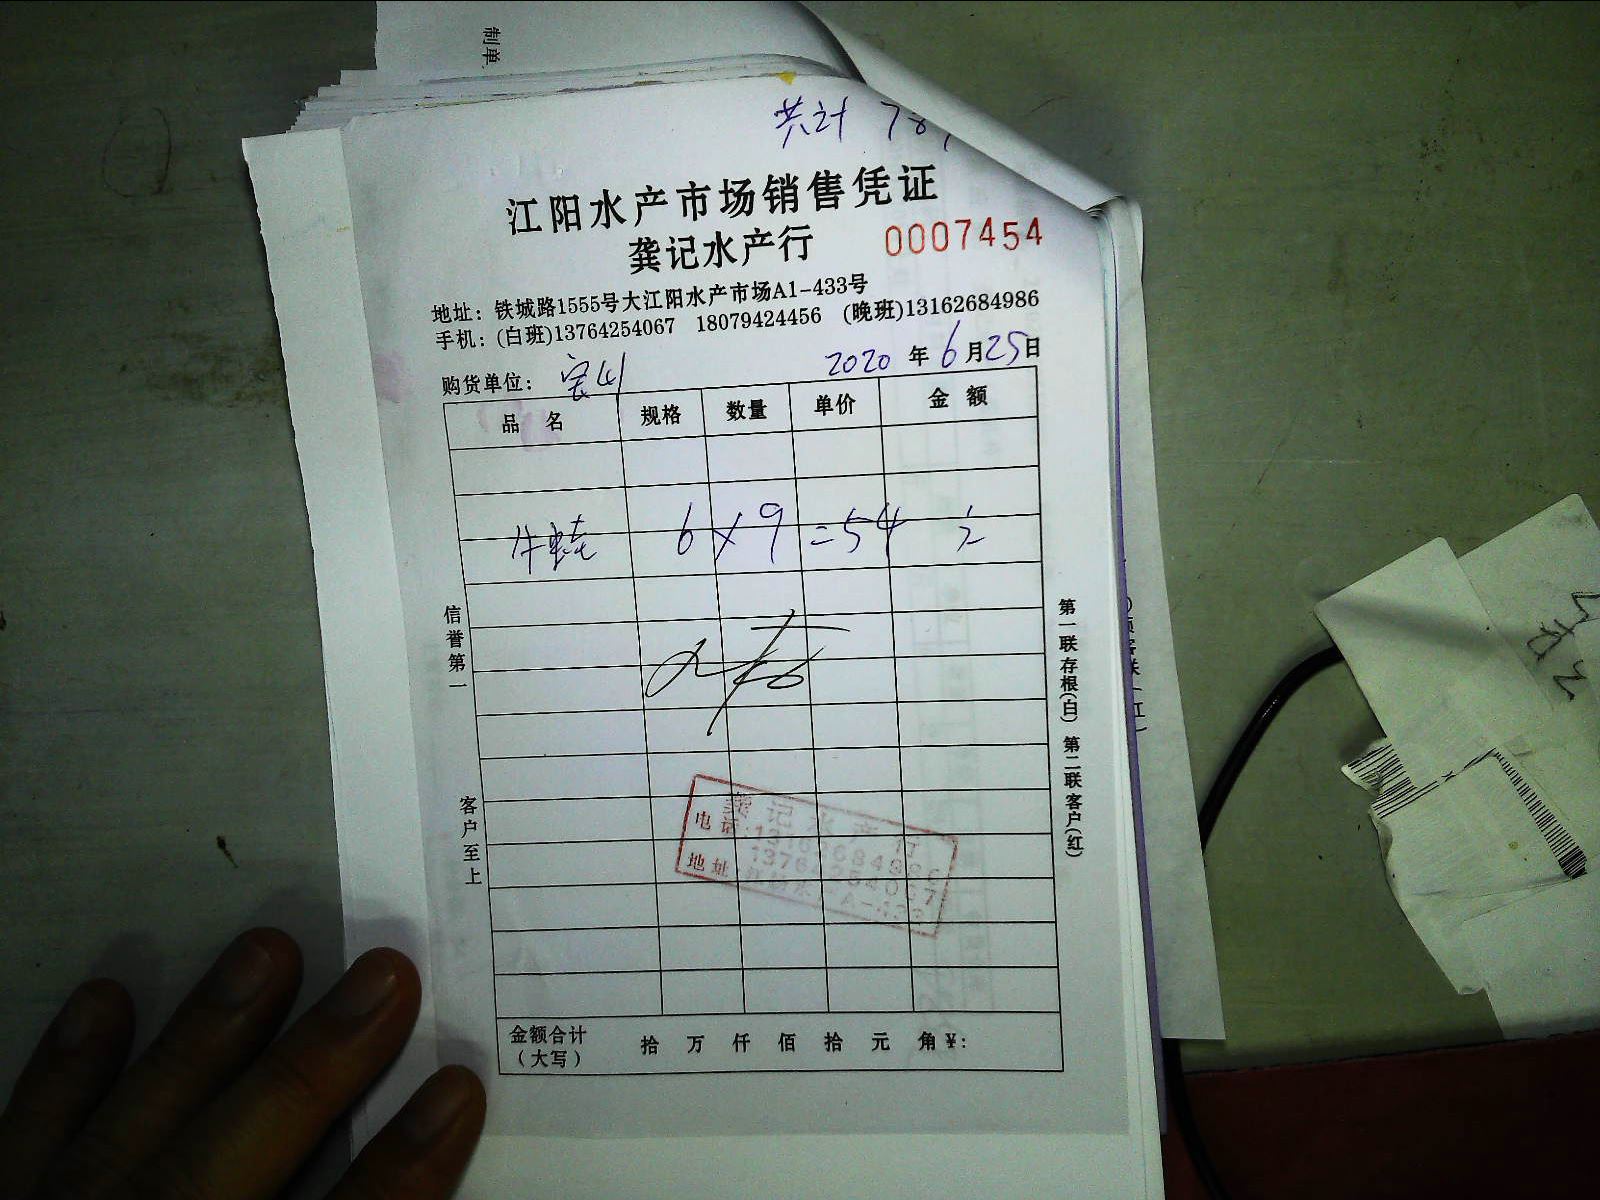 制单
共计
江阳水产市场销售凭证
龚记水产行 0007454
地址：铁城路1555号大江阳水产市场A1-433号
手机：(白班)13764254067 18079424456 (晚班)13162684986
购货单位： 2020 年 6 月 25 日
品 名 规格 数量 单价 金 额
牛蛙 6×9=54 元
信誉第一
客户至上
第一联存根(白) 第二联客户(红)
龚记水产行
电话:13162684986
13764254067
地址: A-433
金额合计（大写） 拾 万 仟 佰 拾 元 角 ¥: